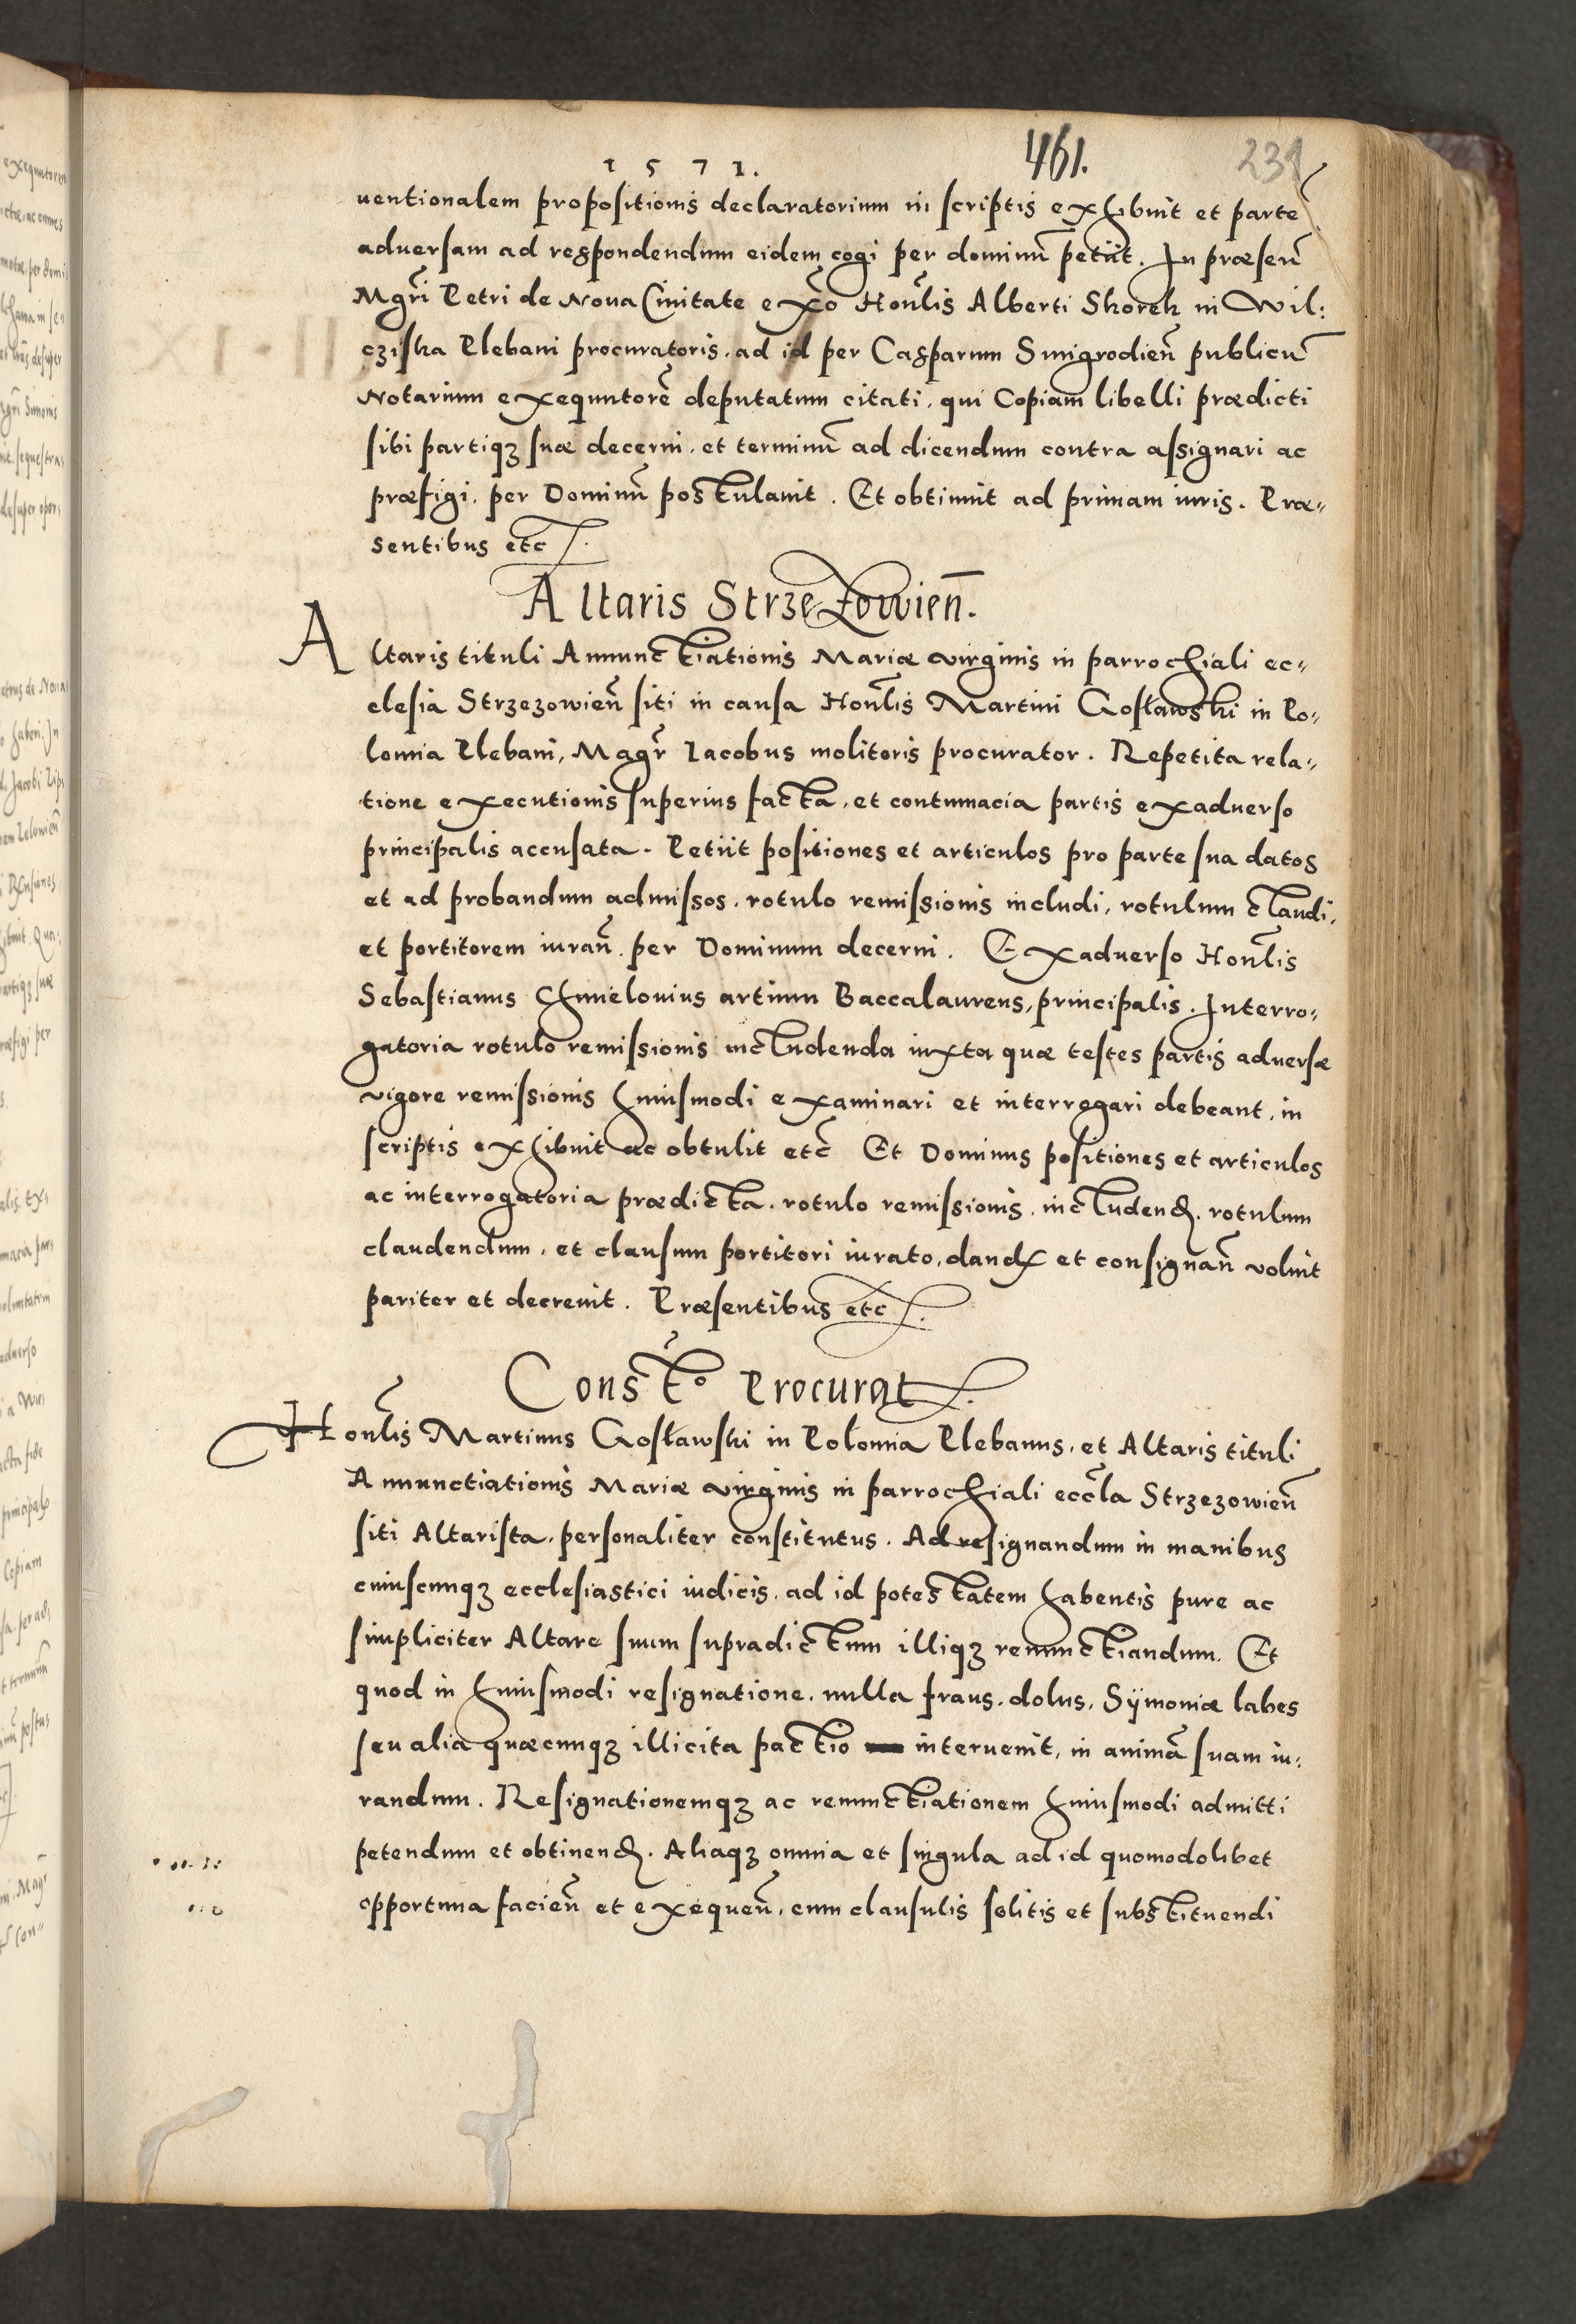 1571.
461.
231
uentionalem propositionis declaratorium in scriptis exhibuit et parte
aduersam ad respondendum eidem cogi per dominū petiit. In præsen̄
Mgr̄i Petri de Noua Ciuitate exꝰo Hon̄lis Alberti Skorek in Wil:
cziska Plebani procuratoris. ad id per Casparum Smigrodien̄ publicū
Notarium exequutorē deputatum citati, qui Copiam libelli prædicti
sibi partiqꝫ suæ decerni, et terminū ad dicendum contra assignari ac
præfigi, per Dominū postulauit. Et obtinuit ad primam iuris. Præ-
sentibus etc.
Altaris Strzezowien̄.
Altaris tituli Annunctiationis Mariæ virginis in parrochiali ec-
clesia Strzezowien̄ siti in causa Hon̄lis Martini Gosławski in Po-
lomia Plebani, Magr̄ Iacobus molitoris procurator. Repetita rela-
tione executionis superius facta, et contumacia partis exaduerso
principalis accusata. Petiit positiones et articulos pro parte sua datos
et ad probandum admissos, rotulo remissionis includi, rotulum claudi,
et portitorem iuran̄. per Dominum decerni. Exaduerso Hon̄lis
Sebastianus Chmielouius artium Baccalaureus, principalis. Interro-
gatoria rotulo remissionis includenda iuxta quæ testes partis aduersæ
vigore remissionis huiusmodi examinari et interrogari debeant, in
scriptis exhibuit ac obtulit etc̄ Et Dominus positiones et articulos
ac interrogatoria prædicta, rotulo remissionis, includend. rotulum
claudendum, et clausum portitori iurato, dand et consignan̄ voluit
pariter et decreuit. Præsentibus etc.
Constō Procurat.
Hon̄lis Martinus Gosławski in Polomia Plebanus, et Altaris tituli
Annunctiationis Mariæ virginis in parrochiali ecc̄la Strzezowien̄
siti Altarista, personaliter constitutus. Ad resignandum in manibus
cuiuscunqꝫ ecclesiastici iudicis, ad id potestatem habentis pure ac
simpliciter Altare suum supradictum illiqꝫ renunctiandum. Et
quod in huiusmodi resignatione, nulla fraus, dolus, Sÿmoniæ labes
seu alia quæcunqꝫ illicita pactio interuenit, in animā suam iu-
randum. Resignationemqꝫ ac renunctiationem huiusmodi admitti
petendum et obtinend. Aliaqꝫ omnia et singula ad id quomodolibet
opportuna facien̄ et exequen̄, cum clausulis solitis et substituendi